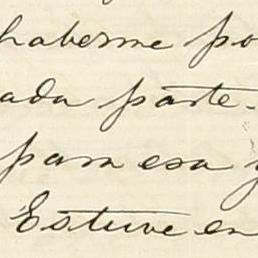 haberme po
ada parte.
para esa y
Estuve en